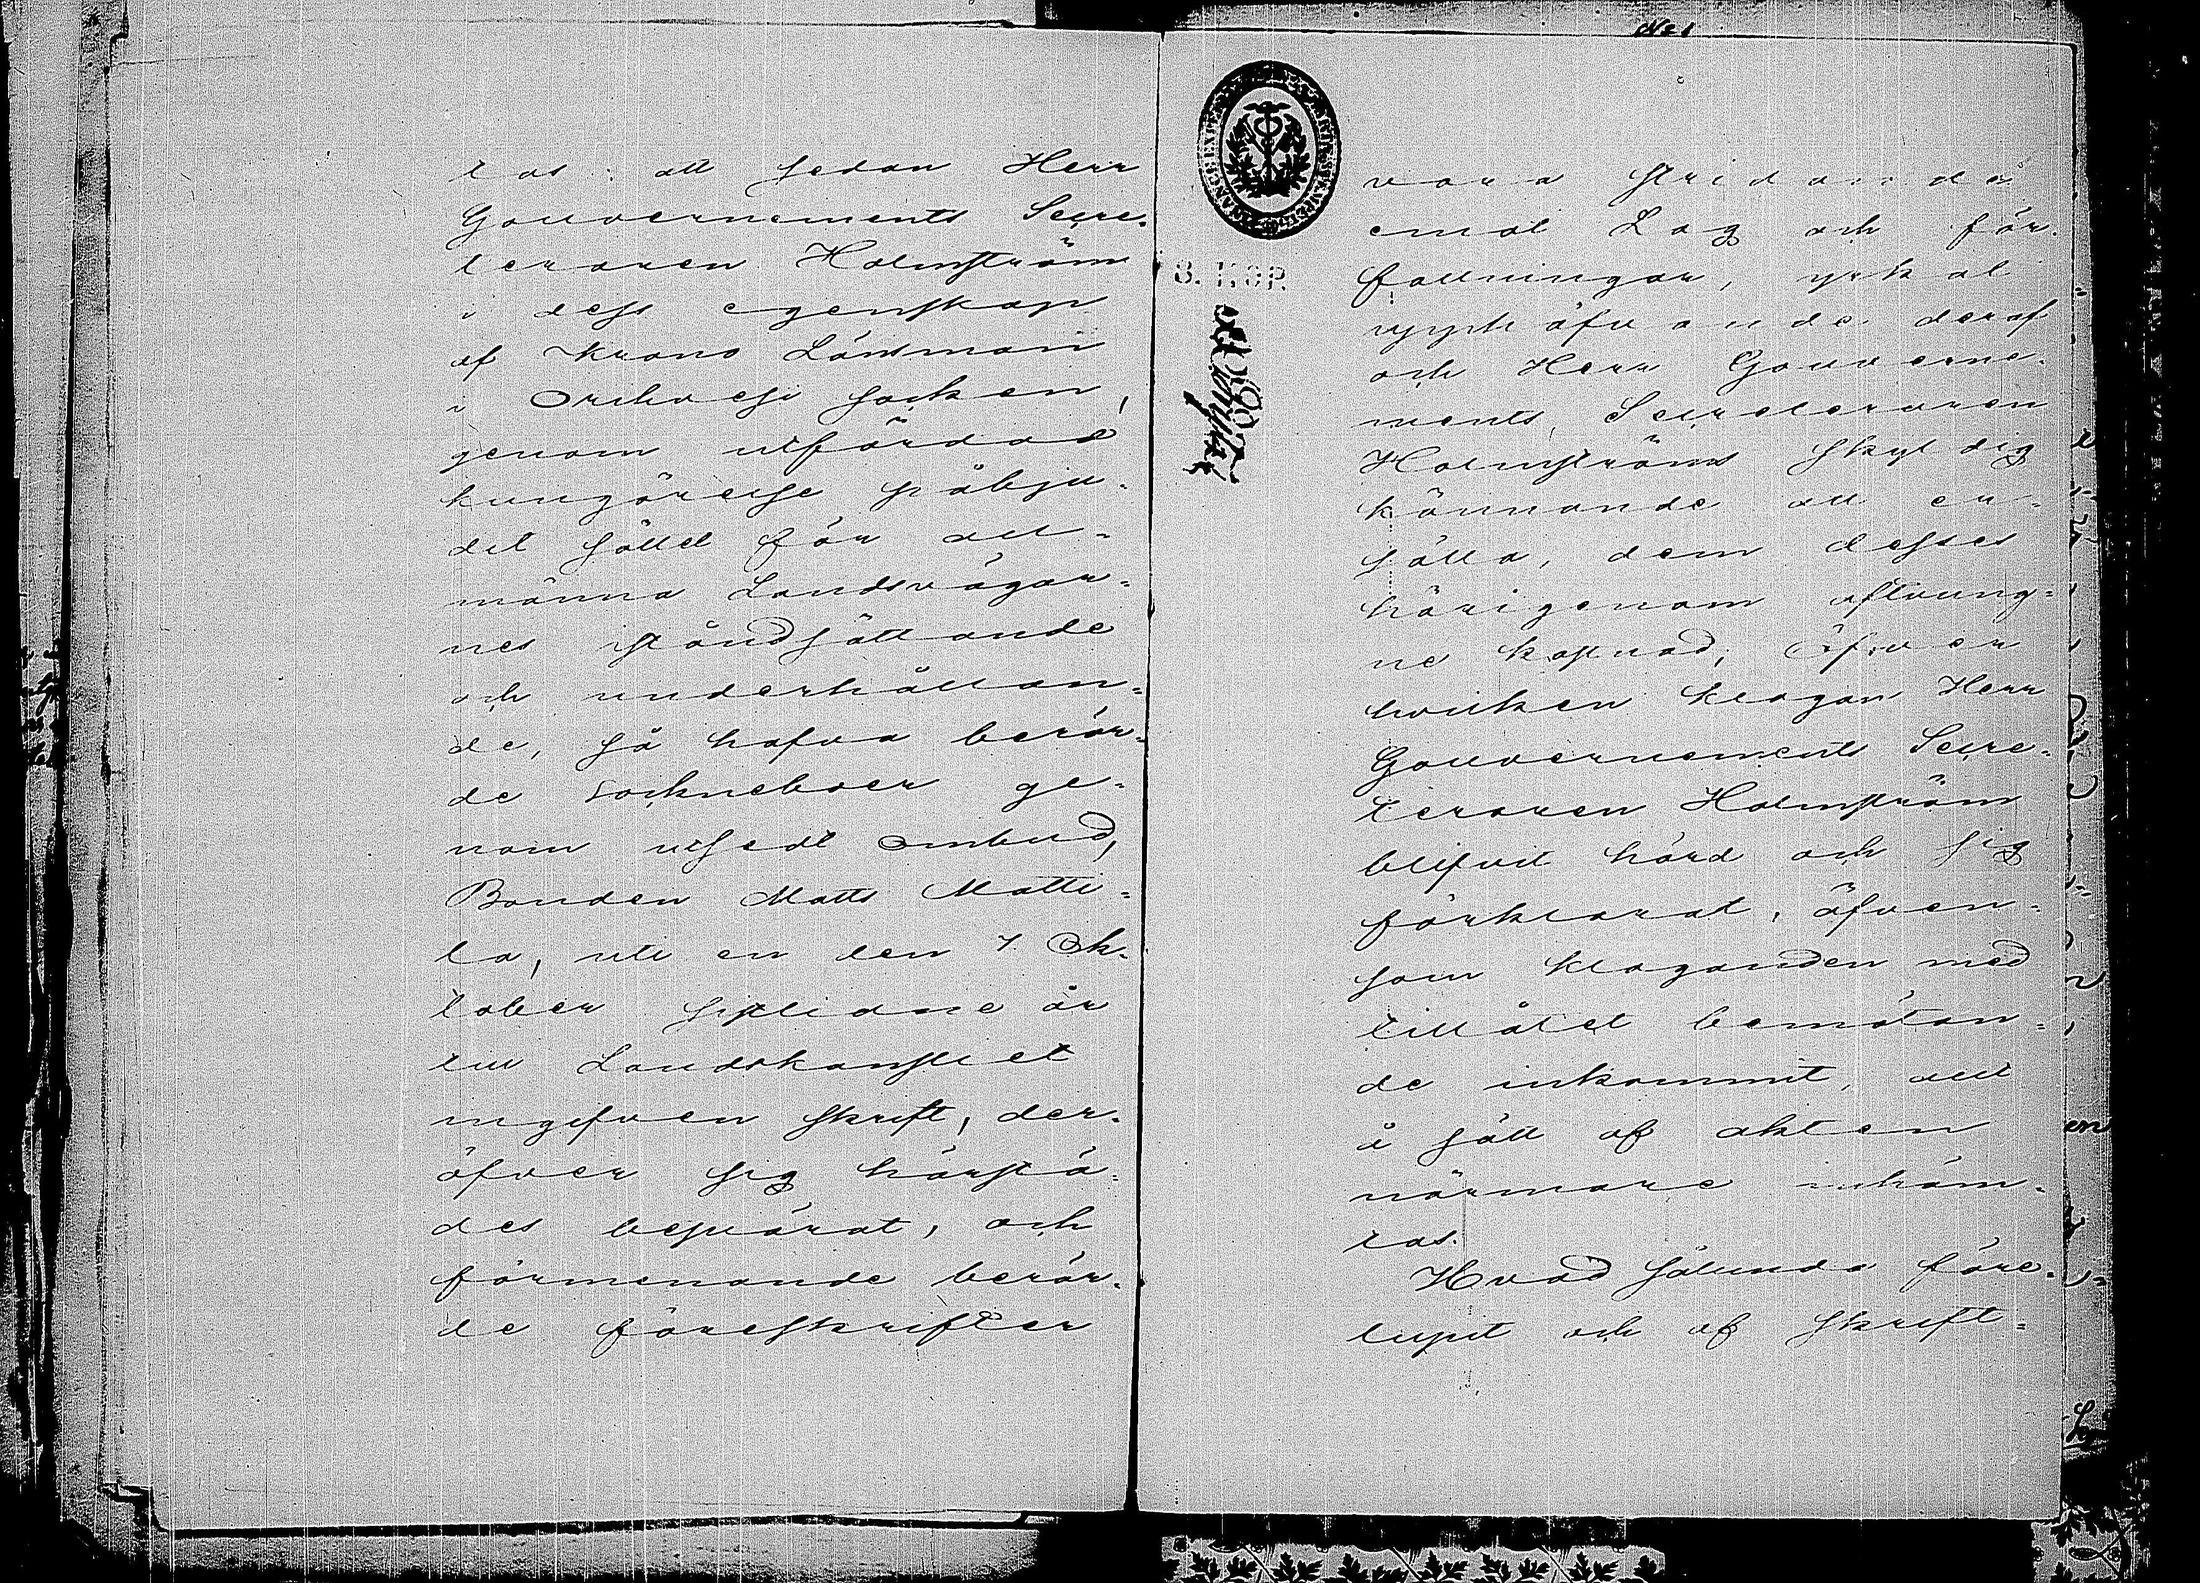 tas: att sedan Herr
Gouvernements Secre=
teraren Holmström
i dess egenskap
af Krono Länsman
i Orihvesi socken,
genom utfärdad
kungörelse påbju=
dit sättet för all=
männa Landsvägar=
nes iståndsättande
och underhållan=
de, så hafva berör=
de Sockneboer ge=
nom utsedt ombud,
Bonden Matts Matti=
la, uti en den 7 Ok=
tober sistlidne år
till Landskansliet
ingifven skrift, der=
öfver sig härstä=
des besvärat, och
förmenande berör=
de föreskrifter
No 1
3. KOP.
vara stridande
emot Lag och för=
fattningar, yrkat
upphäfvande deraf
och Herr Gouverne=
ments Secreteraren
Holmströms skyldig
kännande att er=
sätta, dem desses
härigenom aftvung=
ne kostnad; Öfver
hvilken klagan Herr
Gouvernements Secre=
teraren Holmström
blifvit hörd och sig
förklarat, äfven=
som klaganden med
tillåtet bemötan=
de inkommit, allt
å sätt af akten
närmare inhäm=
tas.
Hvad sålunda före=
lupit och af skrift=